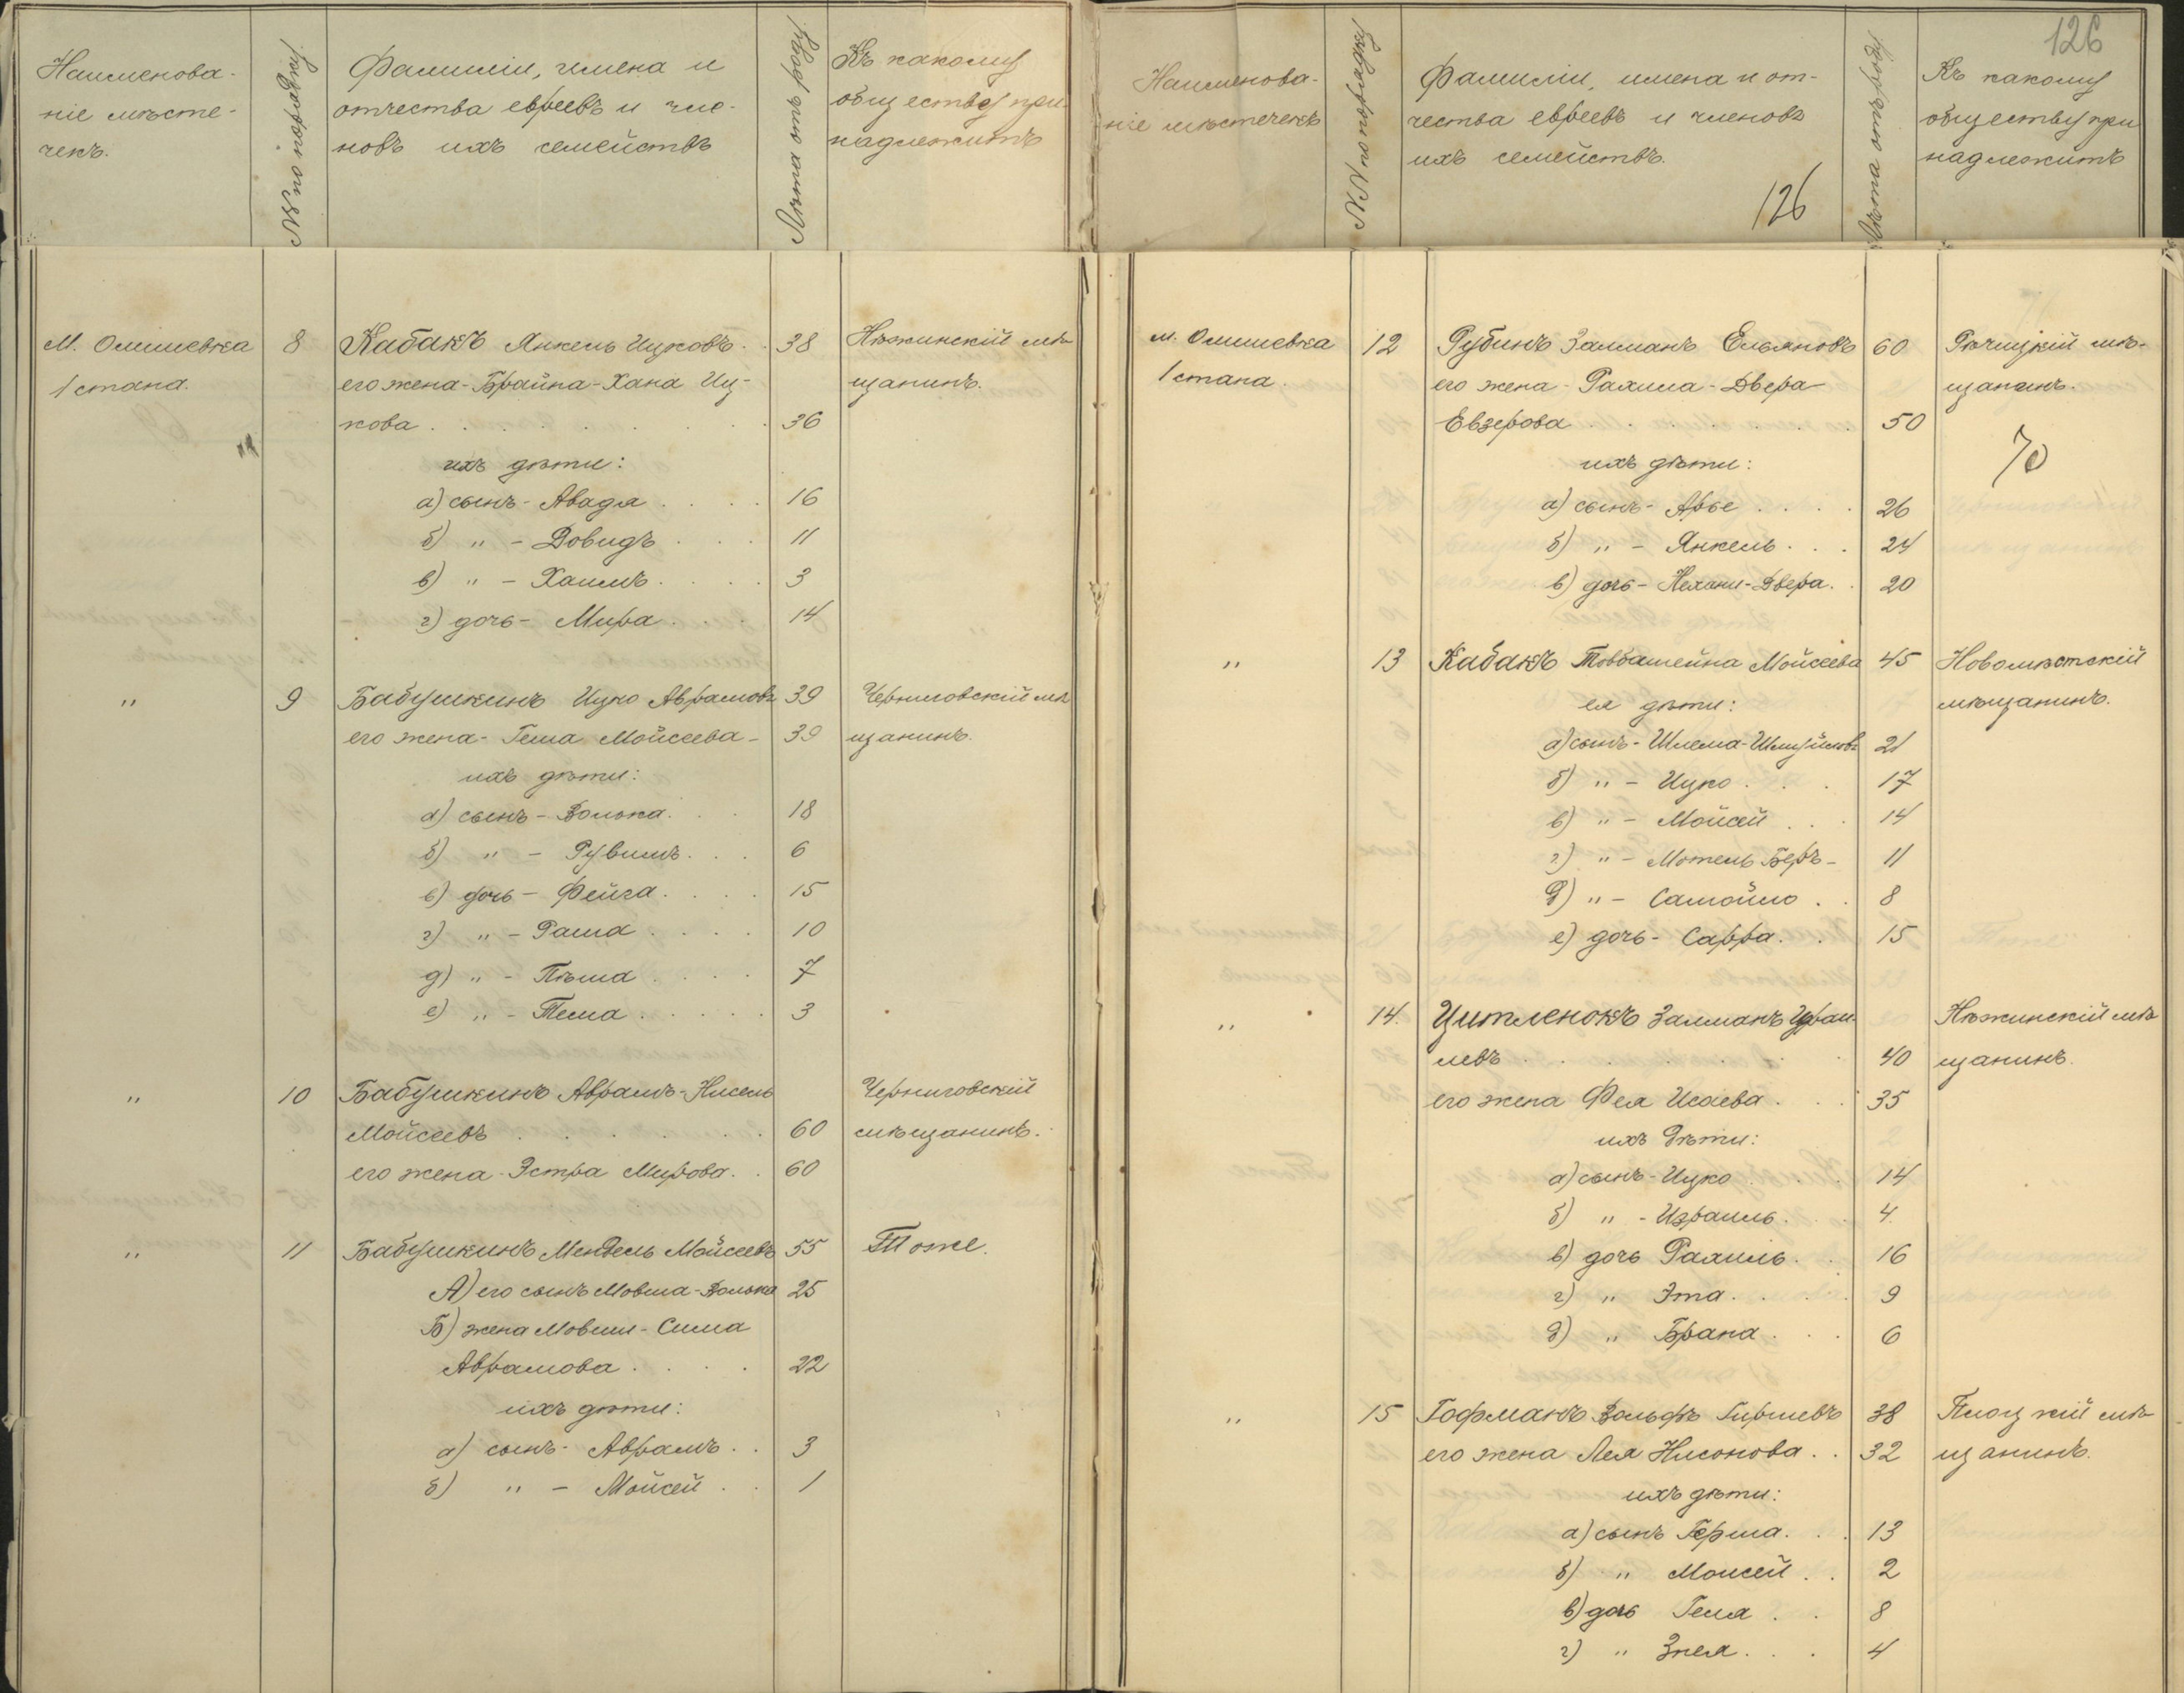 Наименова-
ніе мѣсте-
чекъ.
№№ по порядку.
Фамиліи, имена и
отчества евреевъ и чле-
новъ ихъ семействъ
Лѣта отъ роду.
Къ какому
обществу при-
надлежитъ
М. Олишевка
1 стана.
8
Кабакъ Янкель Ицковъ. 38
Нѣжинскій мѣ-
щанинъ.
его жена - Брайна-Хана Иц-
кова 36
ихъ дѣти:
а) сынъ - Авадя 16
б) " - Довидъ 11
в) " - Хаимъ 3
г) дочь - Мира 14
"
9
Бабушкинъ Ицко Аврамовъ 39
Черниговскій мѣ
щанинъ.
его жена - Геша Мойсеева - 39
ихъ дѣти:
а) сынъ - Волька 18
б) " - Рувимъ 6
в) дочь - Фейга 15
г) " - Раша 10
д) " - Пѣша 7
е) " - Тема 3
"
10
Бабушкинъ Аврамъ-Нисель
Мойсеевъ 60
Черниговскій
мѣщанинъ.
его жена - Эстра Мирова 60
"
11
Бабушкинъ Мендель Мойсеевъ 55
Тоже.
А) его сынъ Мовша-Волька 25
Б) жена Мовши - Сима
Аврамова 22
ихъ дѣти:
а) сынъ - Аврамъ 3
б) " - Мойсей 1
126
Наименова-
ніе мѣстечекъ
№№ по порядку
Фамиліи, имена и от-
чества евреевъ и членовъ
ихъ семействъ.
126
Лѣта отъ роду.
Къ какому
обществу при
надлежитъ
м. Олишевка
1 стана.
12
Рубинъ Залманъ Ельяновъ 60
Рѣчицкій мѣ-
щанинъ.
его жена - Рахила-Двера
Евзерова 50
70
ихъ дѣти:
а) сынъ - Арье 26
б) " - Янкель 24
в) дочь - Нехани-Двера. 20
"
13
Кабакъ Мойсеева 45
Новомѣстскій
мѣщанинъ.
ея дѣти:
а) сынъ - Шлема-Шмуйловъ 21
б) " - Ицко 17
в) " - Мойсей 14
г) " - Мотель Беръ - 11
д) " - Самойло 8
е) дочь - Сарра 15
"
14.
Цитленокъ Залманъ Израи-
левъ 40
Нѣжинскій мѣ
щанинъ.
его жена Фея Исаева 35
ихъ дѣти:
а) сынъ - Ицко 14
б) " - Израиль 4.
в) дочь Рахиль 16
г) " Эта 9
д) " Брана 6
"
15
Гофманъ Вольфъ Гиршевъ 38
Плоцкій мѣ-
щанинъ.
его жена Лея Нисонова 32
ихъ дѣти:
а) сынъ Герша 13
б) " Моисей 2
в) дочь Геня 8
г) " Знея 4